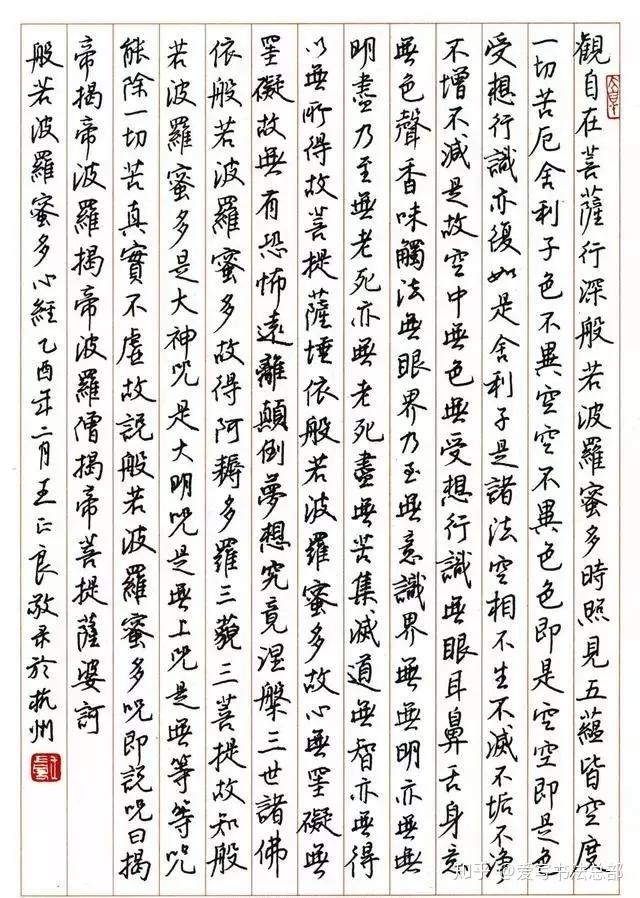 觀自在菩薩行深般若波羅蜜多時照見五蘊皆空度
一切苦厄舍利子色不異空空不異色色即是空空即是色
受想行識亦復如是舍利子是諸法空相不生不滅不垢不净
不增不減是故空中無色無受想行識無眼耳鼻舌身意
無色聲香味觸法無眼界乃至無意識界無無明亦無無
明盡乃至無老死亦無老死盡無苦集滅道無智亦無得
以無所得故菩提薩埵依般若波羅蜜多故心無罣礙無
罣礙故無有恐怖遠離顛倒夢想究竟涅槃三世諸佛
依般若波羅蜜多故得阿耨多羅三藐三菩提故知般
若波羅蜜多是大神咒是大明咒是無上咒是無等等咒
能除一切苦真實不虛故說般若波羅蜜多咒即說咒曰揭
帝揭帝波羅揭帝波羅僧揭帝菩提薩婆訶
般若波羅蜜多心經乙酉年二月王正良敬录於杭州
知乎 @爱写书法总部